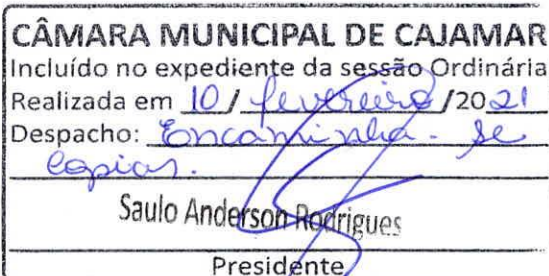 CÂMARA MUNICIPAL DE CAJAMAR
Incluído no expediente da sessão Ordinária
Realizada em 10 / fevereiro /2021
Despacho: Encaminha-se
copias.
Saulo Anderson Rodrigues
Presidente